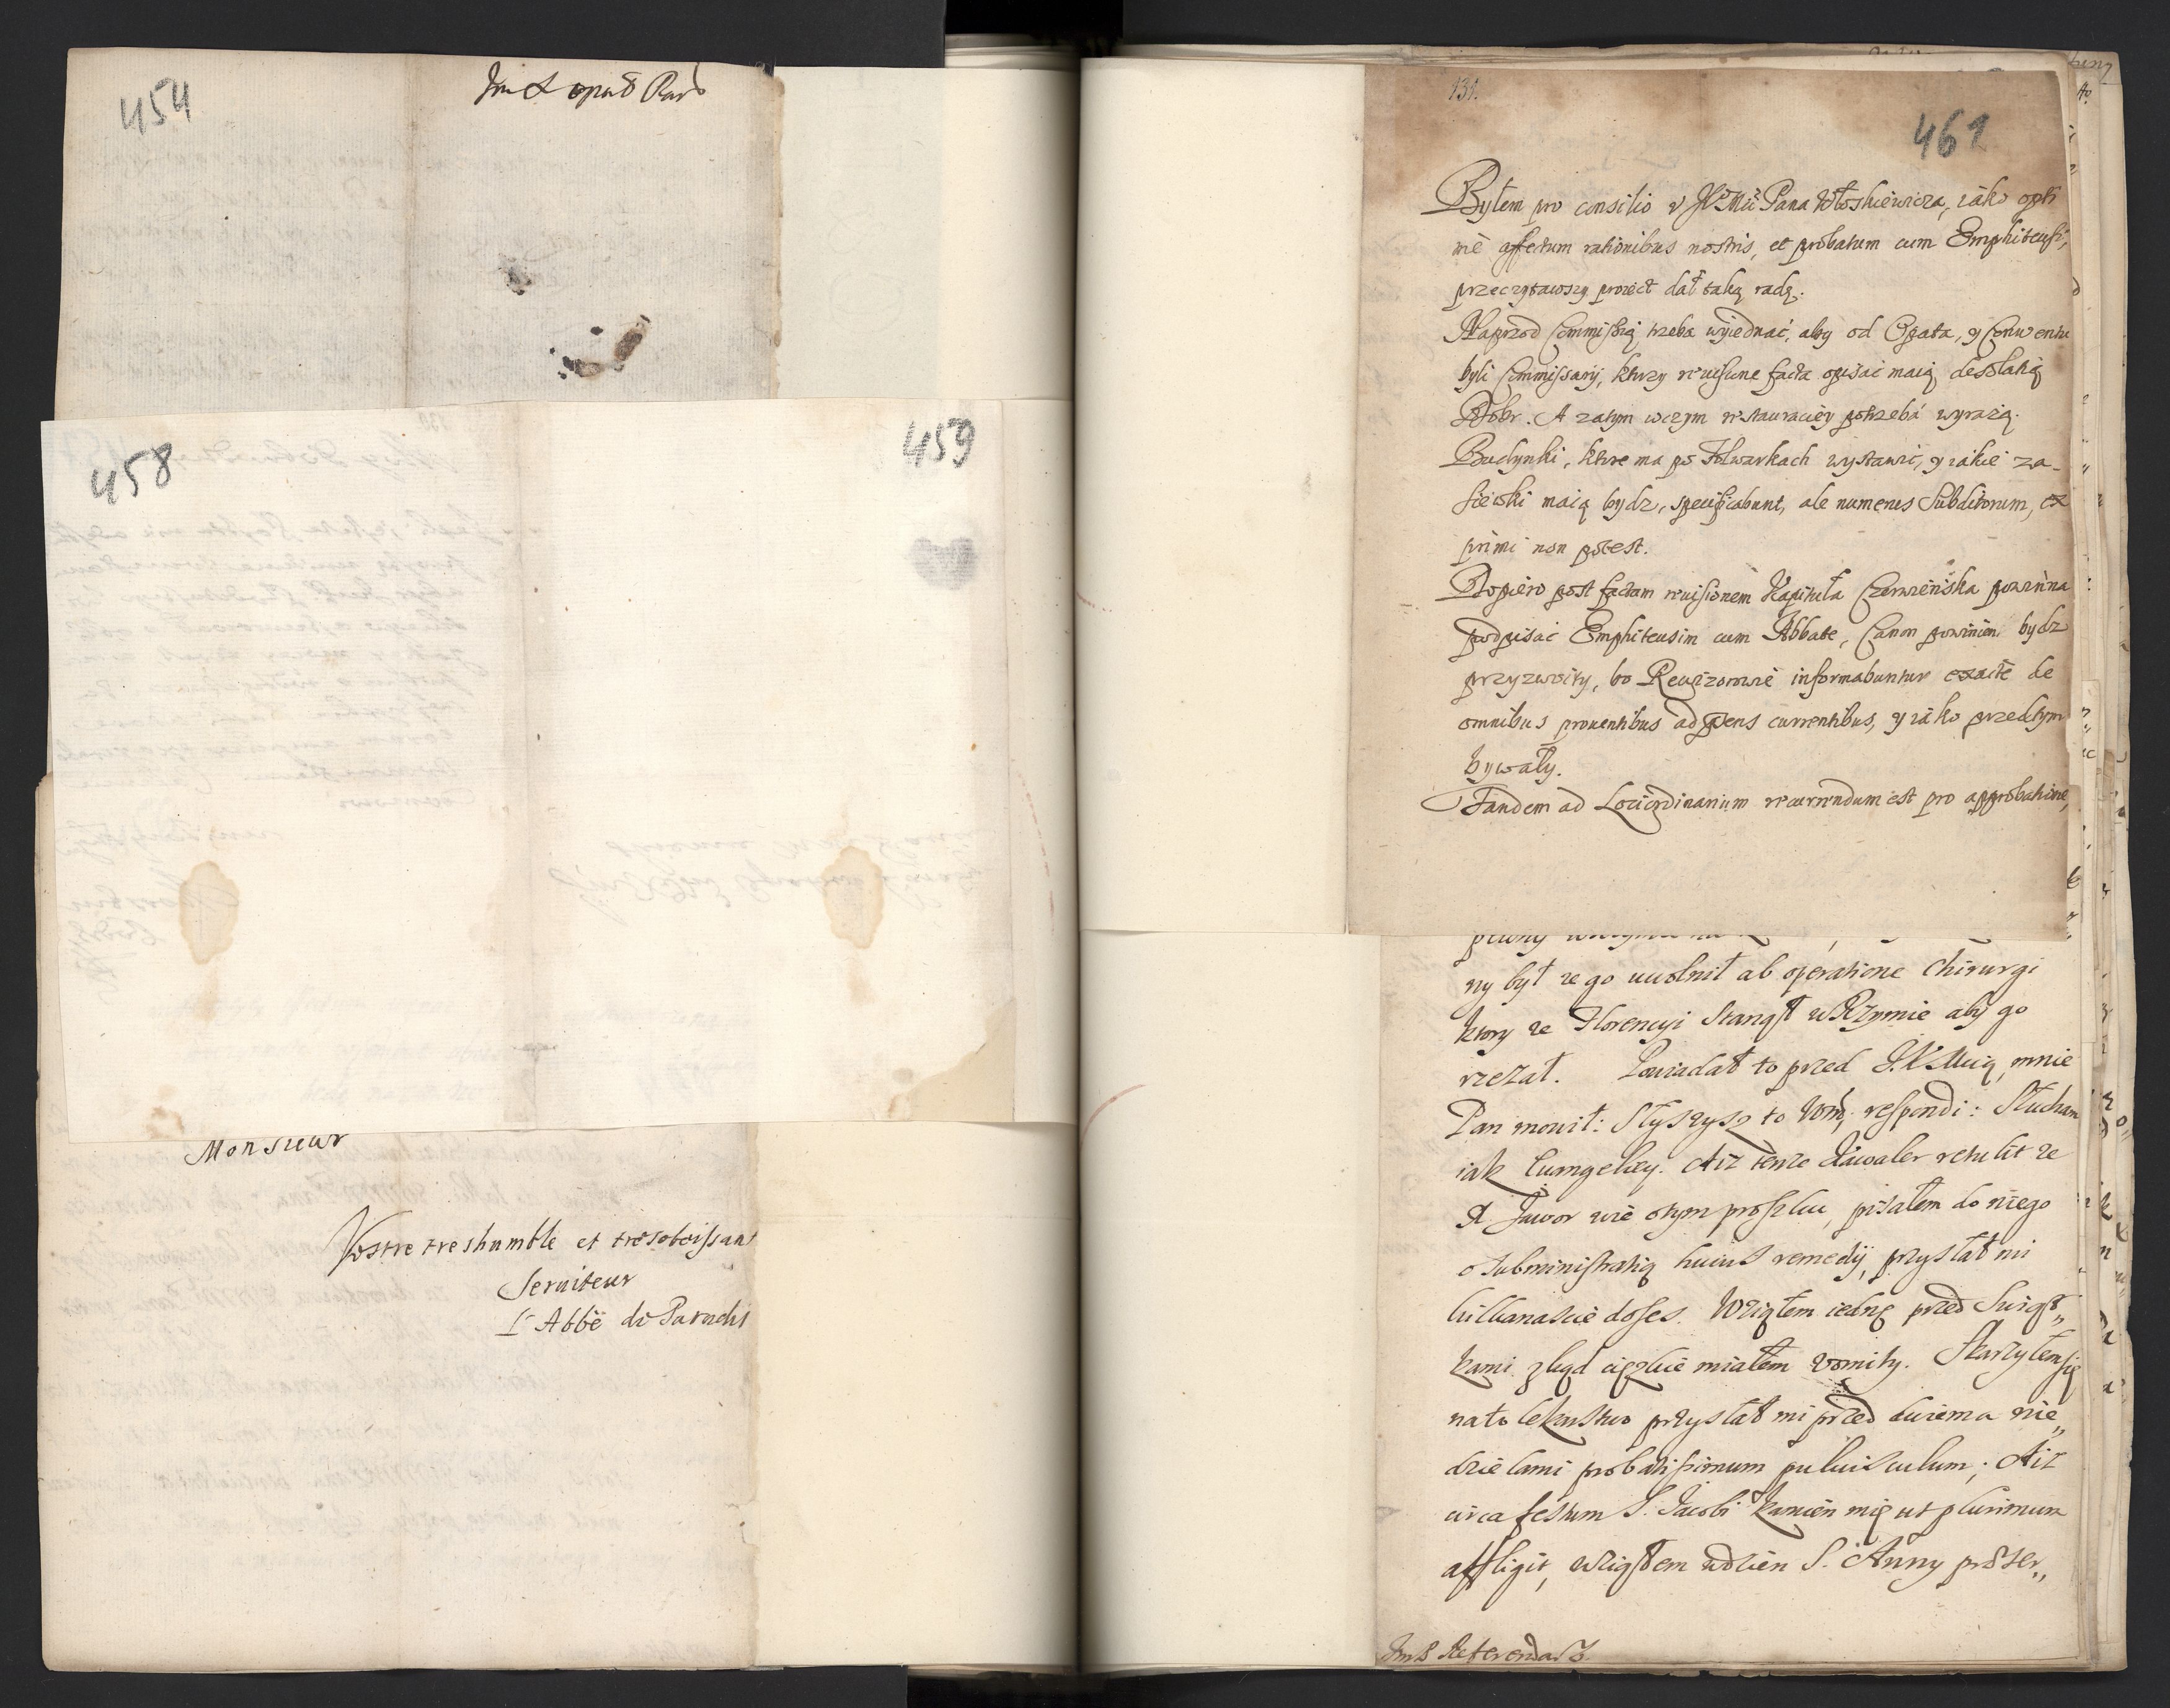 454
458
459
Monsieur
Vostre treshumble et tresobeissant
Seruiteur
L'Abbé de Paradis
131.
461
Byłem pro consilio v Pana Włoskiewicza, iáko opti
mè affectum rationibus nostris, et probatum cum Emphiteusi,
przeczytawszy proiect dał taką radę.
Naprzod Commissią trzeba wyiednać, aby od Opata, y Conwentu
byli Commissarij, ktorzy reuisione facta opisać maią desolatią
Dobr. A zatym wczym restauraciey potrzebá wyrażą.
Budynki, ktore ma po Folwarkach wystawić, y iákie za-
siewki maią bydz, specificabunt, ale numerus Subditorum, ex
primi non potest.
Dopiero post factam reuisionem Kapituła Czerwieńska powinna
podpisać Emphiteusim cum Abbate, Canon powinien bydz
przyzwoity, bo Rewizorowie informabuntur exactè de
omnibus prouentibus ad pñens currentibus, y iáko przedtym
bywały.
Tandem ad Loci ordinarium recurrendum est pro approbatione,
ny był że go uwolnił ab operatione Chirurgi
ktory ze Florencyi stanął w Rzymie aby go
rzezał. Powiadał to przed J.K.Mcią, mnie
Pan mowił: Słyszysz to respondi: Słucham
iak Ewngeliey. Aiż tenże Kawaler retulit że
X Jawor wie otym proszku, pisałem do niego
o subministratią huius remedij, przysłał mi
kilkanascie doses. Wziąłem iednę przed Swiąt„
kami zkąd cięzkie miałem vomity. Skarżyłem się
na to lekarstwo przysłał mi przed dwiema nie„
dzielami probatissimum puluisculum; Aiż
circa festum S. Jacobi kamień mię ut plurimum
affligit, wziąłem wdzień S. Anny proszer„
Referendarz